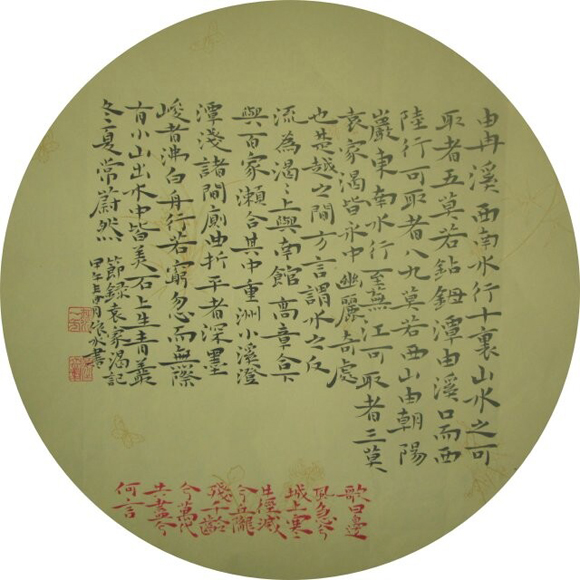 由冉溪西南水行十裏山水之可
取者五莫若鈷鉧潭由溪口而西
陸行可取者八九莫若西山由朝陽
巖東南水行至蕪江可取者三莫
袁家渴皆永中幽麗奇處
也楚越之間方言謂水之反
流為渴〻上與南館高章合下
與百家瀨合其中重洲小溪澄
潭淺諸間廁曲折平者深墨
峻者沸白舟行若窮忽而無際
有小山出水中皆美石上生青叢
冬夏常蔚然
節錄袁家渴記
甲午 月 書
歌曰邊
風急兮
城上寒
井徑滅
兮丘隴
殘千齡
兮萬代
共盡兮
何言